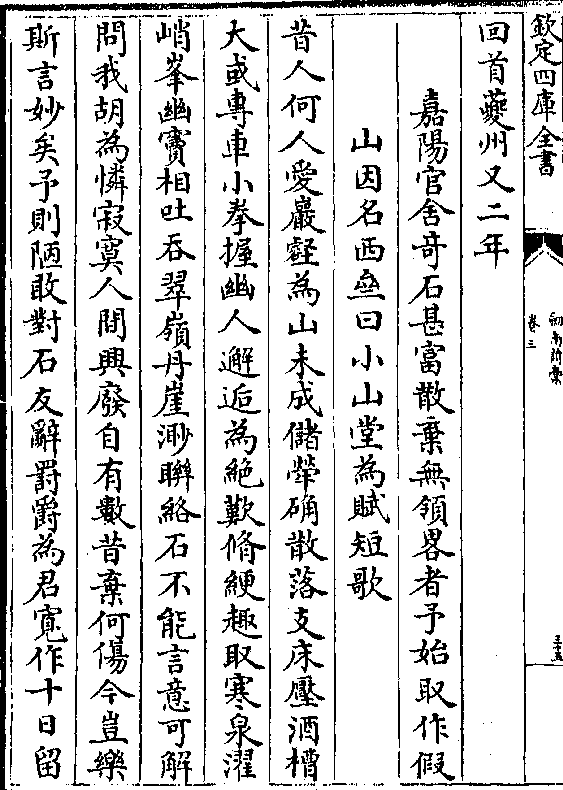 欽定四庫全書
劍南詩稾
卷三
三十五
回首夔州又二年
嘉陽官舍竒石甚富散棄無領畧者予始取作假
山因名西壘曰小山堂為賦短歌
昔人何人愛巖壑為山未成儲犖确散落支床壓酒槽
大或專車小拳握幽人邂逅為絶歎脩綆趣取寒泉濯
峭峯幽竇相吐吞翠嶺丹崖渺聨絡石不能言意可解
問我胡為憐寂寞人間興廢自有數昔棄何傷今豈樂
斯言妙矣予則陋敢對石友辭罰爵為君寛作十日留